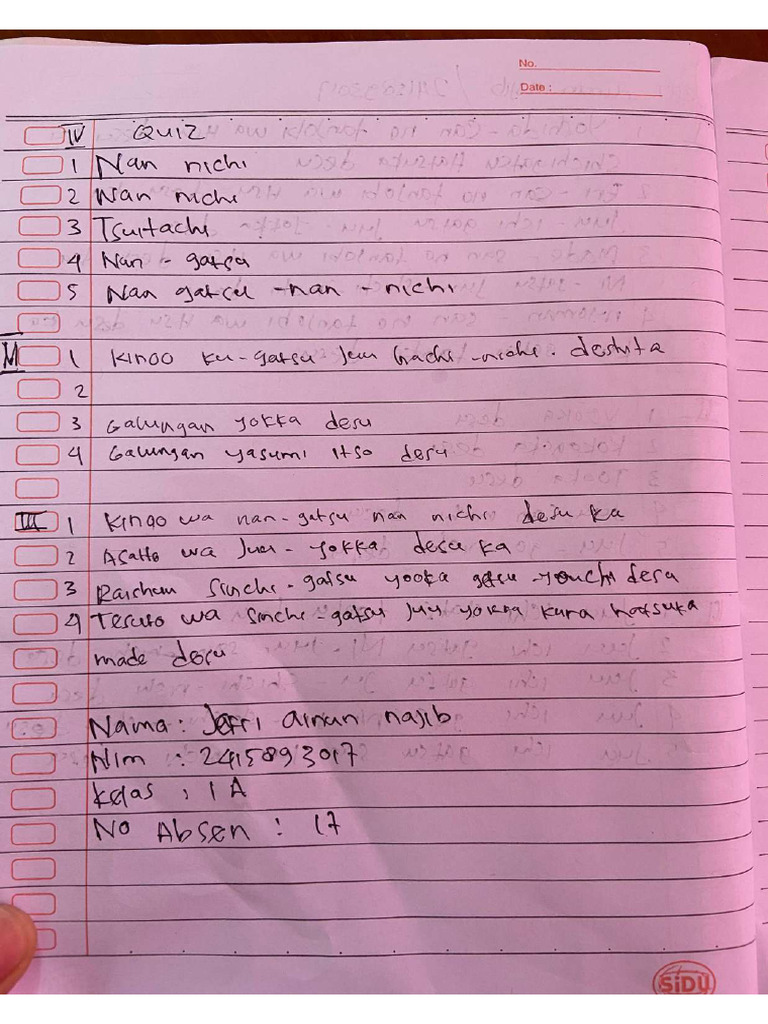 No.
Date :
IV QUIZ
1 Nan nichi
2 Nan nichi
3 Tsuitachi
4 Nan - gatsu
5 Nan gatsu - nan - nichi
1 Kinoo ku-gatsu juu hachi-nichi. deshita
2
3 Galungan yokka desu
4 Galungan yasumi itso desu
III 1 Kinoo wa nan-gatsu nan nichi desu ka
2 Asatte wa juu-yokka desu ka
3 gatsu yooka desu
4 Tesuto wa gatsu juu yokka kara hatsuka
made desu
Nama : Jefri ainun najib
Nim : 2415893017
Kelas : 1 A
No Absen : 17
SiDU